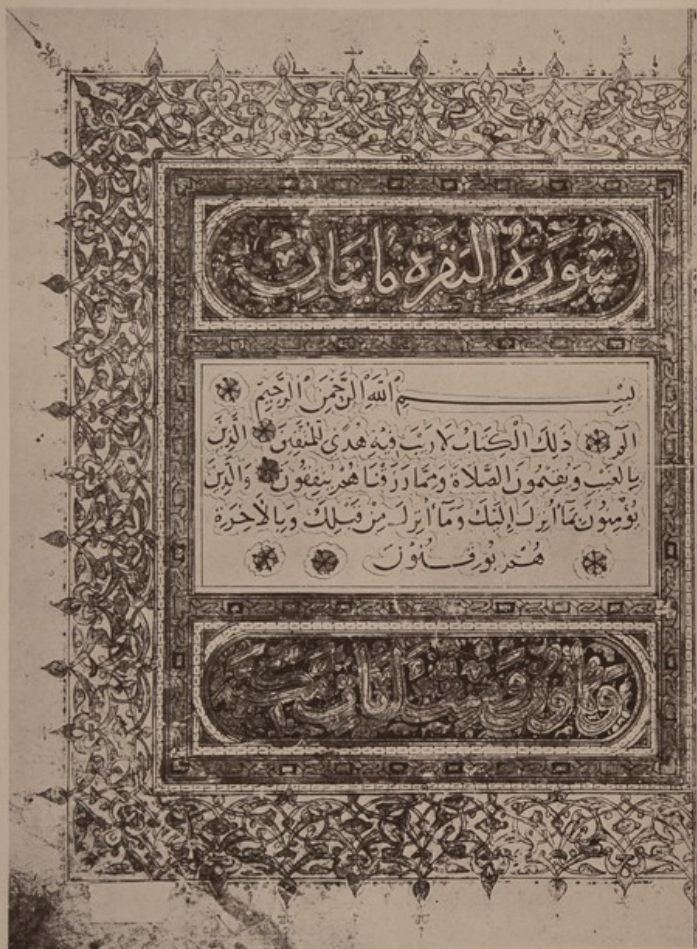 سُورَةُ البَقَرَة مائتانِ
بِسْمِ ٱللَّهِ ٱلرَّحْمٰنِ ٱلرَّحِيمِ
الم ذَلِكَ الْكِتَابُ لَا رَيْبَ فِيهِ هُدًى لِلْمُتَّقِينَ الَّذِينَ
بِالْغَيْبِ وَيُقِيمُونَ الصَّلَاةَ وَمِمَّا رَزَقْنَاهُمْ يُنْفِقُونَ وَالَّذِينَ
يُؤْمِنُونَ بِمَا أُنْزِلَ إِلَيْكَ وَمَا أُنْزِلَ مِنْ قَبْلِكَ وَبِالْآخِرَةِ
هُمْ يُوقِنُونَ